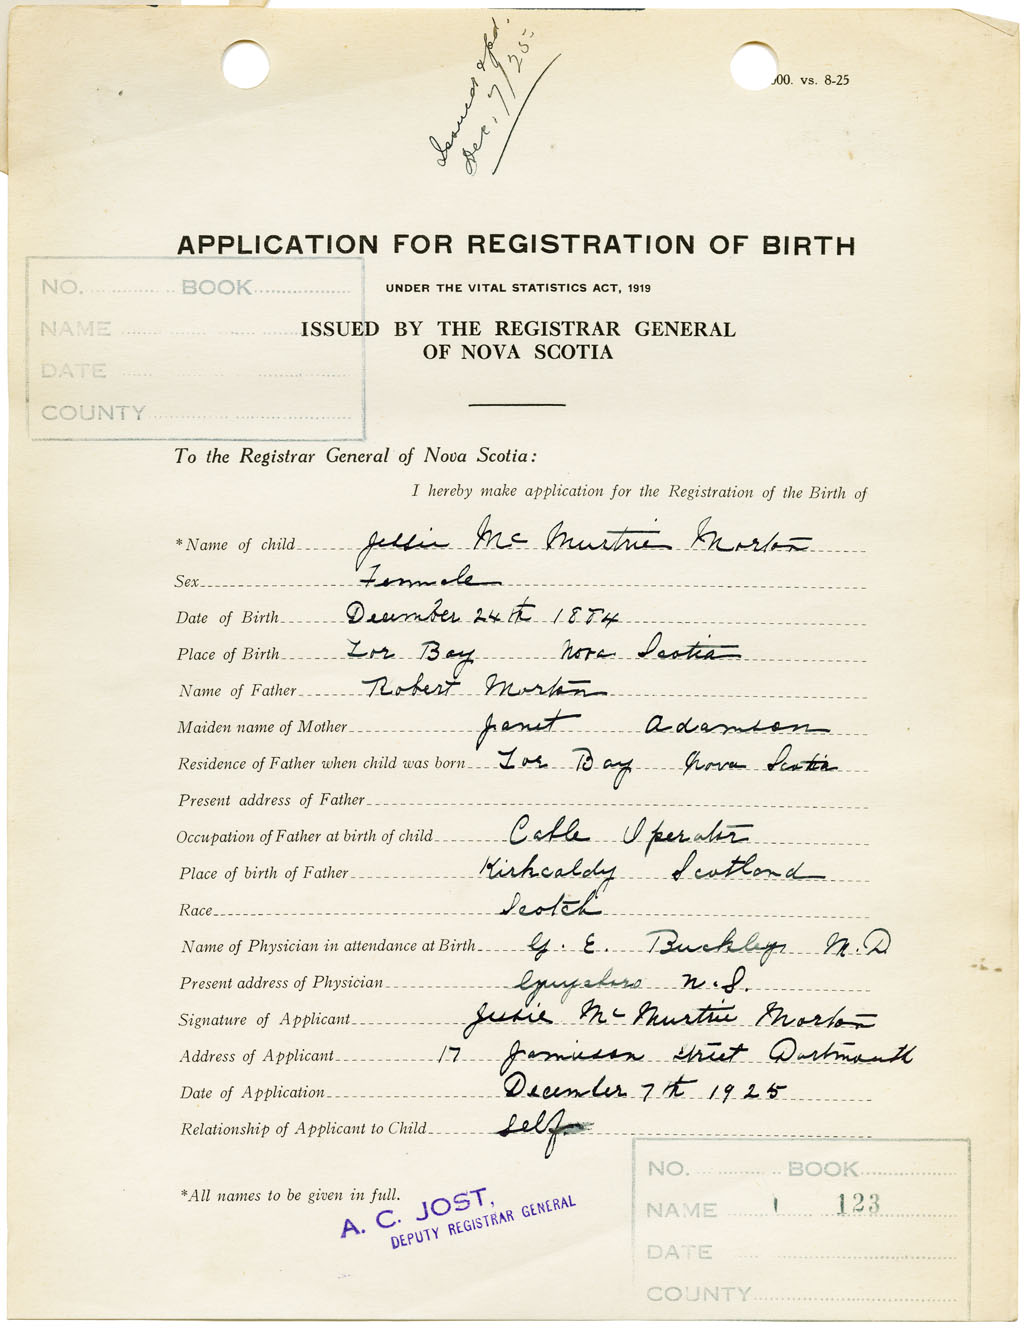 Issued & pd.
Dec. 7/25
00. vs. 8-25
APPLICATION FOR REGISTRATION OF BIRTH
UNDER THE VITAL STATISTICS ACT, 1919
ISSUED BY THE REGISTRAR GENERAL
OF NOVA SCOTIA
NO. BOOK
NAME
DATE
COUNTY
To the Registrar General of Nova Scotia:
I hereby make application for the Registration of the Birth of
*Name of child Jessie McMurtrie Morton
Sex Female
Date of Birth December 24th 1884
Place of Birth Tor Bay Nova Scotia
Name of Father Robert Morton
Maiden name of Mother Janet Adamson
Residence of Father when child was born Tor Bay Nova Scotia
Present address of Father
Occupation of Father at birth of child Cable Operator
Place of birth of Father Kirkcaldy Scotland
Race Scotch
Name of Physician in attendance at Birth G. E. Buckley M.D
Present address of Physician Guysboro N.S.
Signature of Applicant Jessie McMurtrie Morton
Address of Applicant 17 Jamieson Street Dartmouth
Date of Application December 7th 1925
Relationship of Applicant to Child Self
*All names to be given in full.
A. C. JOST,
DEPUTY REGISTRAR GENERAL
NO. BOOK
NAME 123
DATE
COUNTY